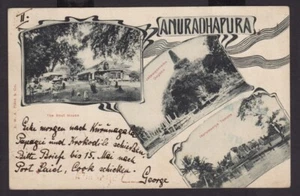 II.
ANURADHAPURA.
The Rest House
Gehe morgen nach Kurunegala
Papagei und Krokodile schießen.
Bitte Briefe bis 15. Mai nach
Port Said, Cook schicken.
George